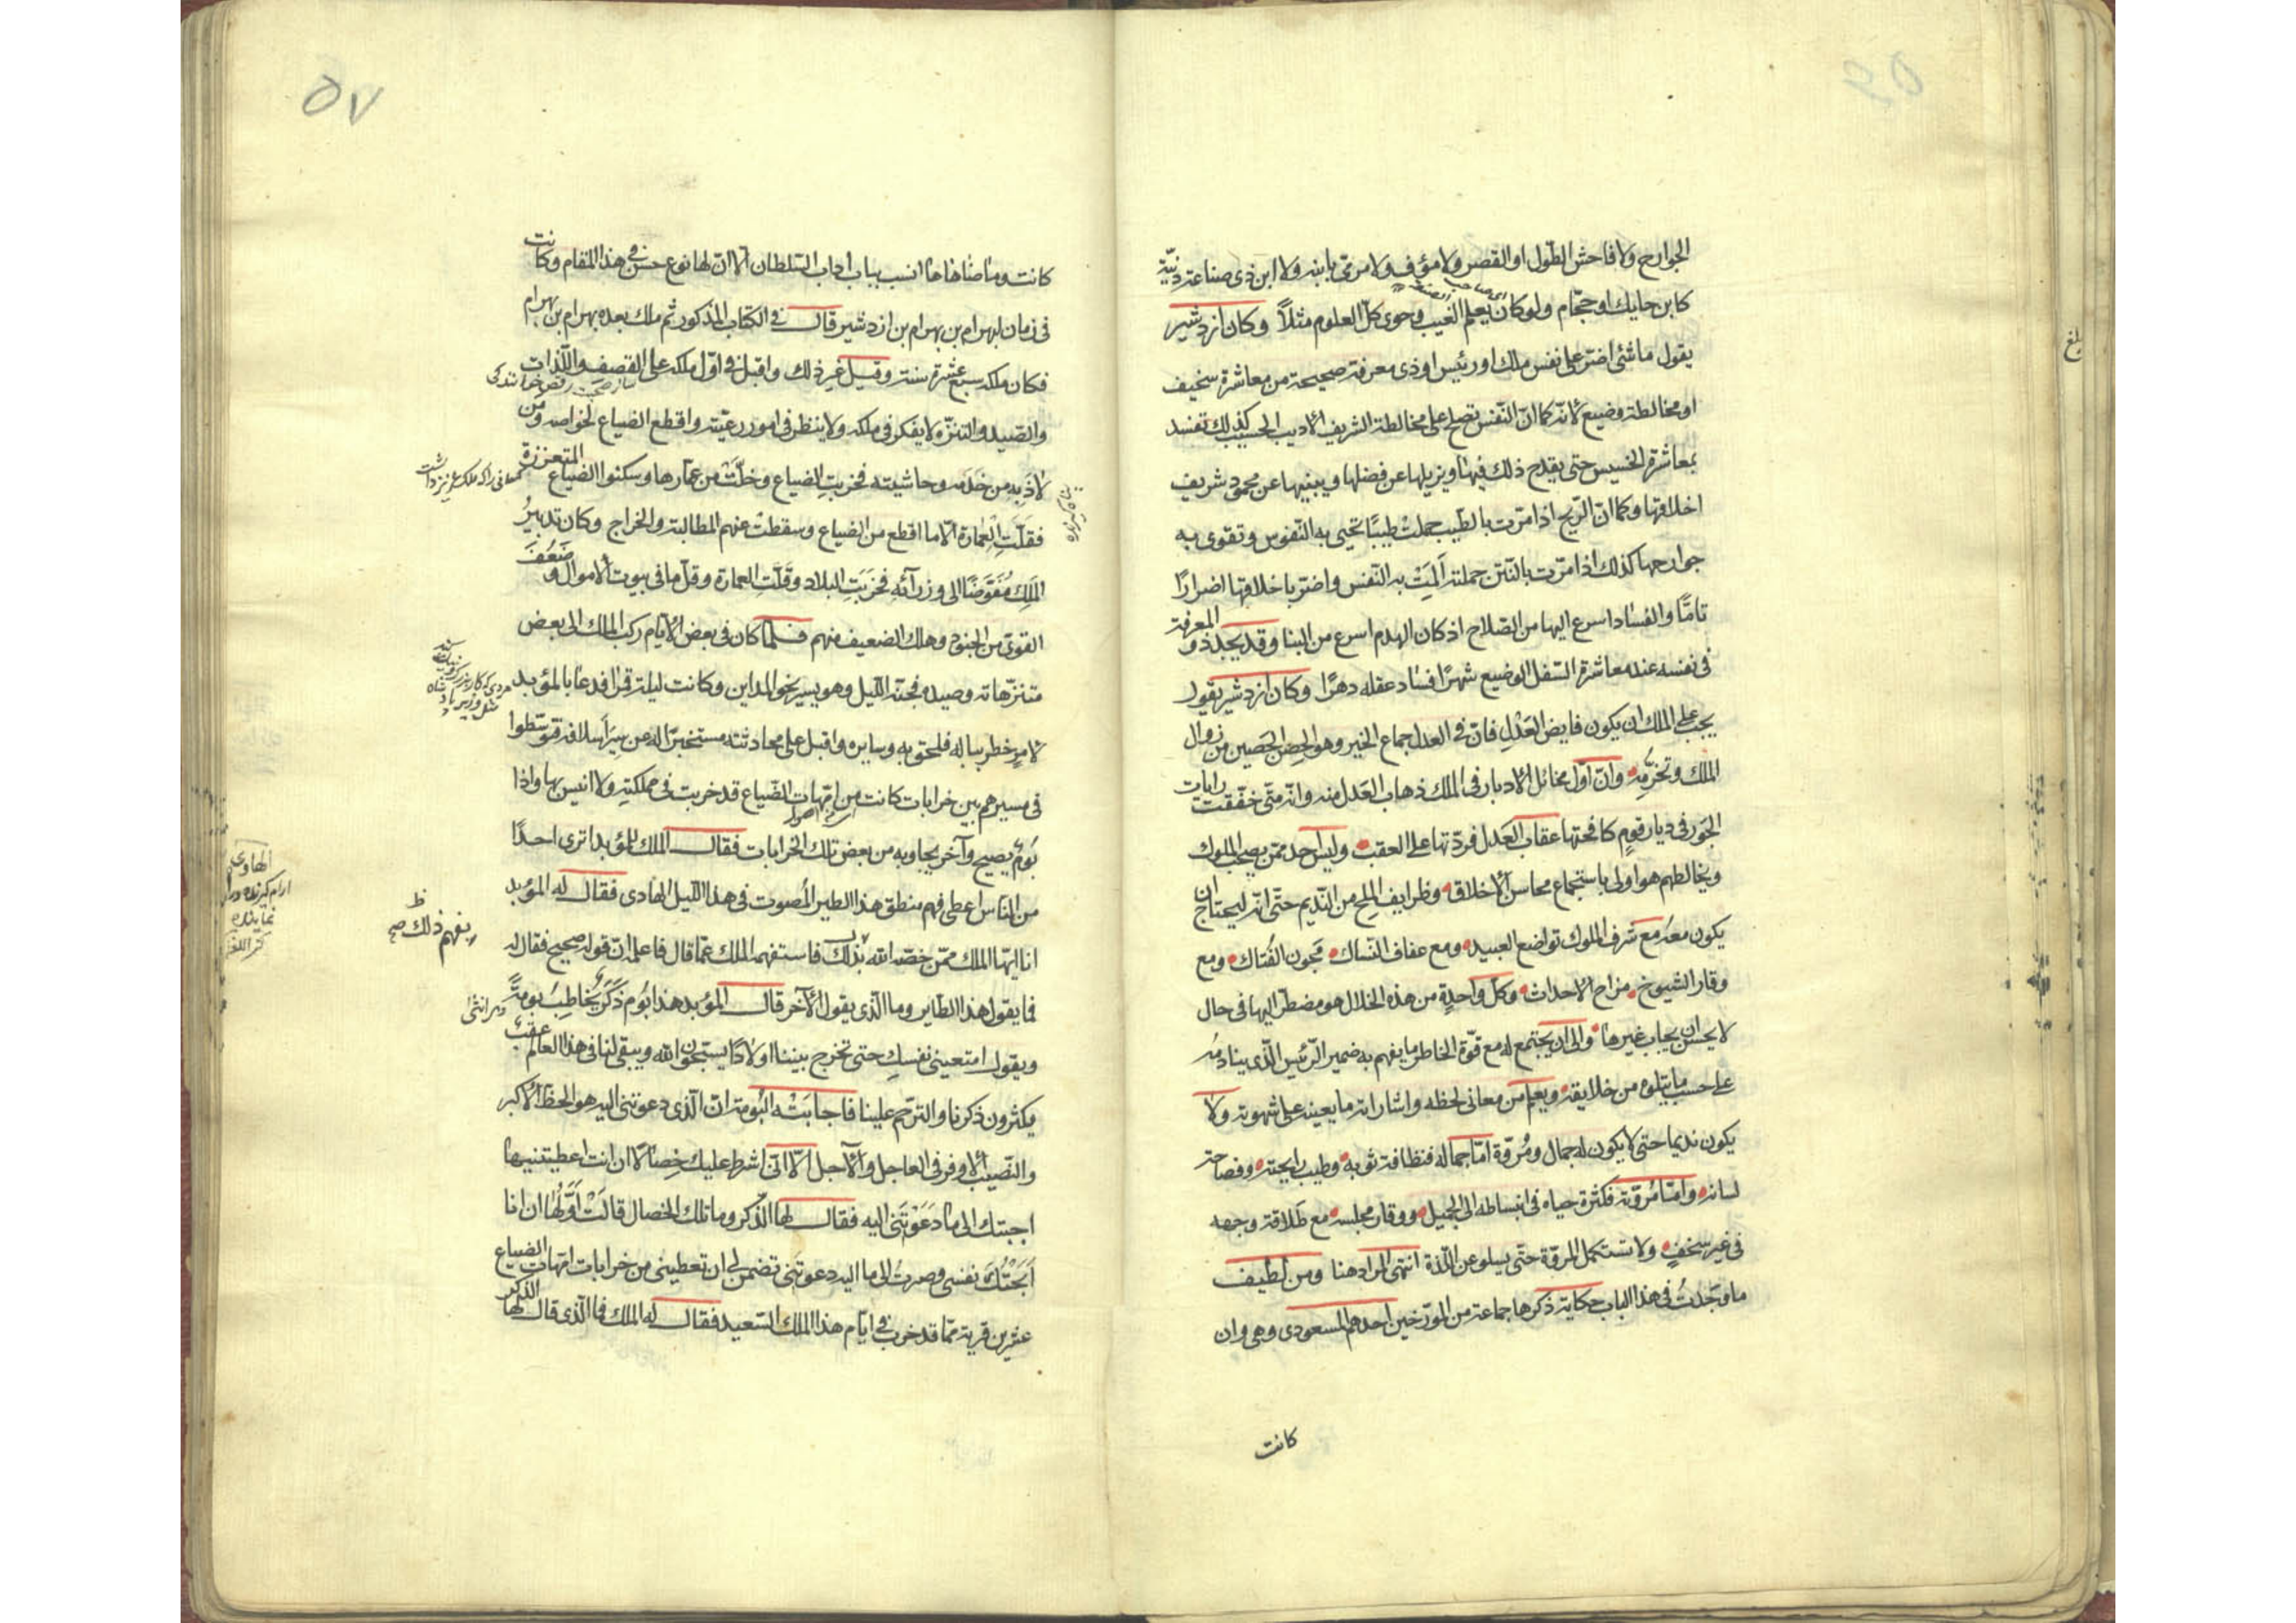 الجوارح ولا فاحش الطول او القصر ولا مؤف ولا مرمى بابنه ولا ابن ذى صناعة دنيّة
كابن حايك او حجّام ولو كان يعلم الغيب وحوى كلّ العلوم مثلاً وكان ازدشير
يقول ما شئ اضرّ على نفس ملك او رئيس او ذى معرفة صحيحة من معاشرة سخيف
او مخالطة وضيع لانّه كما انّ النّفس تصلح على مخالطة الشريف الاديب الحسيب كذلك تفسد
بمعاشرة الخسيس حتى يقدح ذلك فيها ويزيلها عن فضلها ويثنيها عن محمود شريف
اخلاقها وكما انّ الرّيح اذا مرّت بالطّيب حملت طيبًا تحيى به النّفوس وتقوى به
جوارحها كذلك اذا مرّت بالنّتن حملته اَلِمَتْ به النّفس واضرّ باخلاقها اضرارًا
تامّا والفساد اسرع اليها من الصّلاح اذ كان الهدم اسرع من البنا وقد يجد ذو المعرفة
فى نفسه عند معاشرة السّفل الوضيع شهرًا فساد عقله دهرًا وكان ازدشير يقول
يجب على الملك ان يكون فايض العَدْلِ فانّ فى العدل جماع الخير وهو الحِصْن الحَصين من زوال
الملك وتخرّمه وانّ اوّل مخائل الادبار فى الملك ذهاب العَدل منه وانّه متى خفقت رايات
الجَور فى ديار قومٍ كافحتها عقاب العَدل فردّتها على العقب وليس احد ممّن يصحب الملوك
ويخالطهم هو اولى باستجماع محاسن الاخلاق وظرايف المِلح من النّديم حتّى انّه ليحتاج ان
يكون معهُ مع شَرف الملوك تواضع العبيد ومع عفاف النّساك مجون الفُتاك ومع
وقار الشيوخ مزاح الاحداث وكلّ واحدةٍ من هذه الخلال هو مضطرّ اليها فى حال
لا يحسن ان يجاب غيرها والى ان يجتمع له مع قوّة الخاطر ما يفهم به ضمير الرّئيس الّذى ينادمُه
على حسب ما يتلوه من خلايقه ويعلم من معانى لحظه واشاراته ما يعينه على شهوته ولا
يكون نديما حتى لا يكون له جمال ومُروّة امّا جماله فنظافة ثوبه وطيب رايحته وفصاحة
لسانه وامّا مُروّته فكثرة حياه فى انبساطه الى الجميل ووقار مجلسه مع طَلاقة وجهه
فى غير سخفٍ ولا تستكمل المروّة حتّى يسلو عن اللّذة انتهى المراد هنا ومن لطيف
ما وجَدتُ فى هذا الباب حكاية ذكرها جماعة من المؤرّخين احدهم المسعودى وهى وان
كانت
كانت ومناصناها هنا انسب بباب اداب السّلطان الّا انّ لها نوع حسن فى هذا المقام وكانت
فى زمان لبهرام بن بهرام بن ازدشير قال فى الكتاب المذكور ثم ملك بعده بهرام بن بهرام
فكان ملكه سبع عشرة سنة وقيل غير ذلك واقبل فى اوّل ملكه على القصف واللّذات
والصّيد والتنزّه لا يفكر فى ملكه ولا ينظر فى امور رعيّته واقطع الضياع لخواصه ومن
لاذ به من خدَمه وحاشيته فخربتِ الضياع وخلَتْ من عمّارها وسكنوا الضياع المتعززة
فقلّتِ العمارة الّا ما اقطع من الضياع وسقطتْ عنهم المطالبة والخراج وكان تدبيرُ
المَلِك مُفَوّضًا الى وزرآئه فخربَتِ البلاد وقلَّتِ العمارة وقلّ ما فى بيوت الاموال وضَعُفَ
القوىّ من الجنود وهلك الضعيف منهم فلمّا كان فى بعض الايّام ركب الملك الى بعض
متنزّهاته وصيده فجنّه اللّيل وهو يسير نحو المداين وكانت ليلة قمرًا فدعا بالمؤبد
لامرٍ خطر بباله فلحق به وسايره واقبل على محادثته مستخبرًا له عن سِيَر اَسلافه فتوسّطوا
فى مسيرهم بين خرابات كانت من امّهات الضّياع قد خربت فى مملكتِه ولا انيس بها واذا
بُومٌ يصيح وآخر يجاوبه من بعض تلك الخرابات فقال الملك للمؤبد اترى احدًا
من النّاس اعطى فهم منطق هذا الطير المُصوت فى هذا اللّيل الهادى فقال له المؤبد
انا ايّها الملك ممّن خصّه الله بذلك فاستفهمه الملك عمّا قال فاعلمه انّ قوله صحيح فقال له
فما يقول هذا الطاير وما الّذى يقول الآخر قال المؤبد هذا بُوم ذَكَرٌ يُخاطبُ بومةً
ويقول امتعينى نفسكِ حتى تخرج بيننا اولادًا يسبّحون الله ويبقى لنا فى هذا العالم عقبٌ
يكثرون ذكرنا والترّحم علينا فاجابَتْه البُومة انّ الّذى دعوتنى اليه هو الحظ الاكبر
والنّصيب الاوفر فى العاجل والآجل الّا انّى اشرط عليك خِصالًا ان انت اعطيتنيها
اجبتك الى ما دَعَوْتَنى اليه فقال لها الذّكر وما تلك الخصال قالَتْ اَوَّلُها ان انا
اَبَحْتُكَ نفسى وصرتُ الى ما اليه دعوتَنى تضمن لى ان تعطينى من خرابات امّهات الضياع
عشرين قرية ممّا قد خرب فى ايّام هذا الملك السّعيد فقال له الملك فما الّذى قال لها الذّكر
يفهم ذلك صح
ظ
الهادى
٥٧